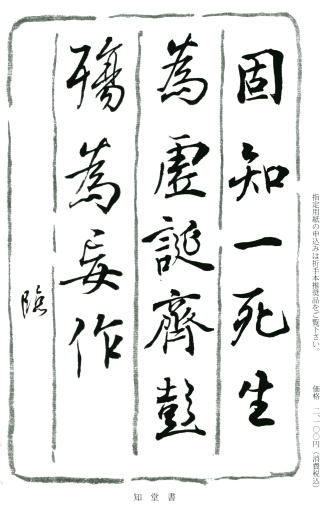 固知一死生
為虚誕齊彭
殤為妄作
臨
指定用紙の申込みは折手本推奨品をご覧下さい。
価格 二、一〇〇円(消費税込)
知堂書